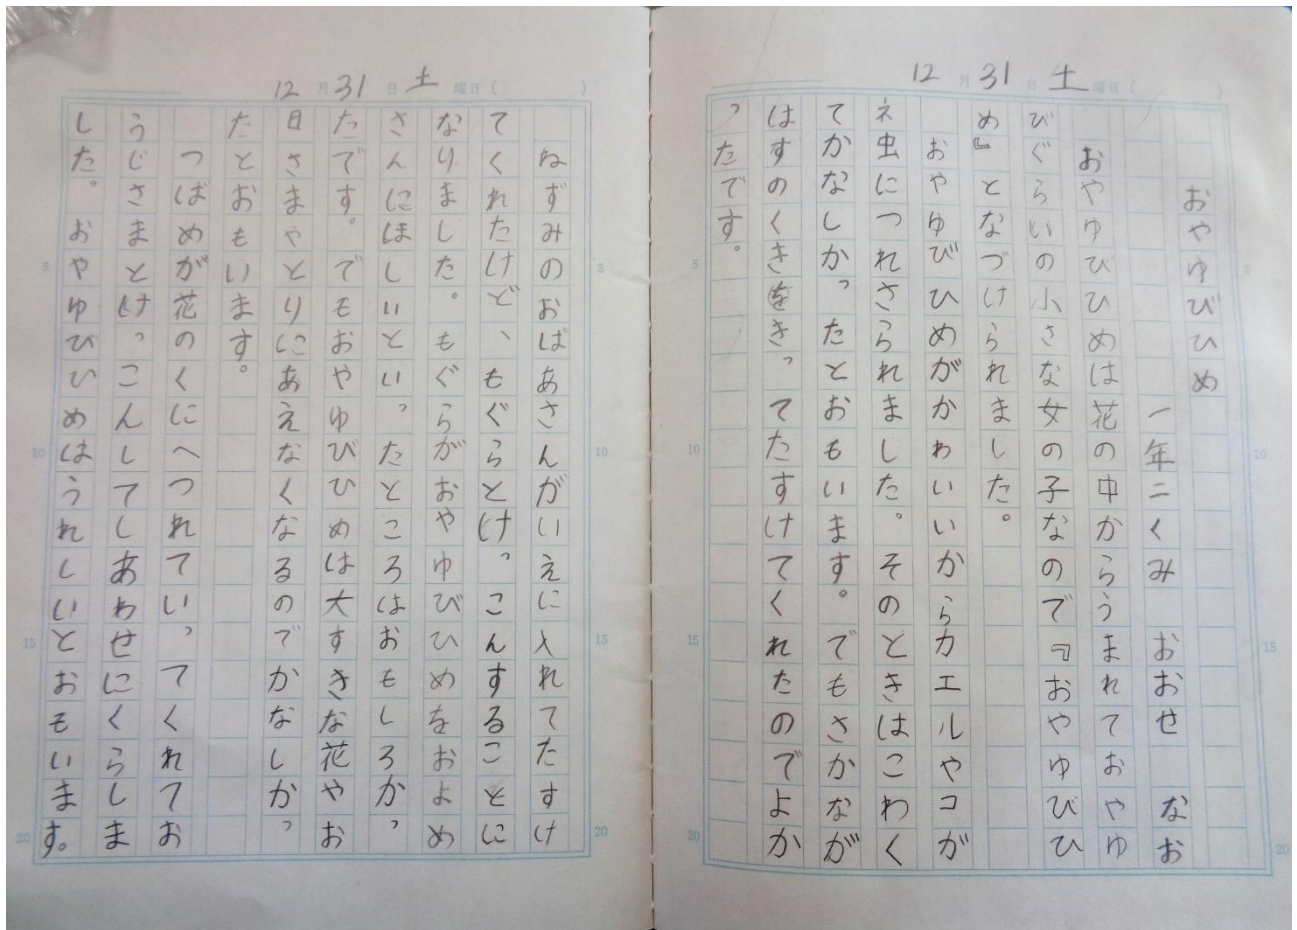 12月31日土曜日( )
おやゆびひめ
一年二くみ おおせ なお
おやゆびひめは花の中からうまれておやゆ
びぐらいの小さな女の子なので『おやゆびひ
め』となづけられました。
おやゆびひめがかわいいからカエルやコガ
ネ虫につれさられました。そのときはこわく
てかなしかったとおもいます。でもさかなが
はすのくきをきってたすけてくれたのでよか
ったです。
12月31日土曜日( )
ねずみのおばあさんがいえに入れてたすけ
てくれたけど、もぐらとけっこんすることに
なりました。もぐらがおやゆびひめをおよめ
さんにほしいといったところはおもしろかっ
たです。でもおやゆびひめは大すきな花やお
日さまやとりにあえなくなるのでかなしかっ
たとおもいます。
つばめが花のくにへつれていってくれてお
うじさまとけっこんしてしあわせにくらしま
した。おやゆびひめはうれしいとおもいます。
5
10
15
20
5
10
15
20
5
10
15
20
5
10
15
20